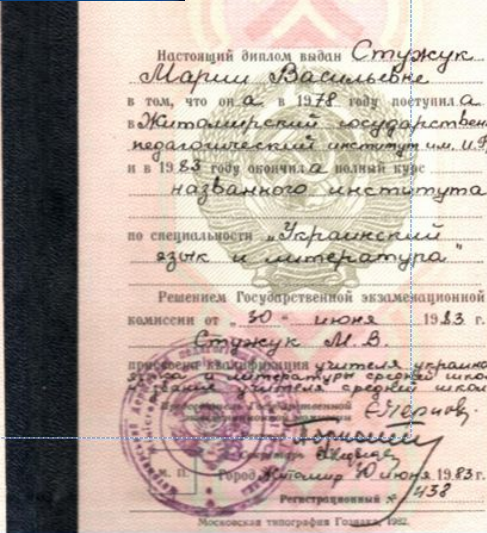 Настоящий диплом выдан Стужук
Марии Васильевне
в том, что он а в 1978 году поступил а
в Житомирский государствен
педагогический институт им. И.Ф
и в 1983 году окончил а полный курс
названного института
по специальности „Украинский
язык и литература"
Решением Государственной экзаменационной
комиссии от „30" июня 1983 г.
Стужук М. В.
присвоена квалификация учителя украинс
языка и литературы средней шко
звание учителя средней школ
Председатель Государственной
экзаменационной комиссии
Секретарь
М. П. Город Житомир 30 июня 1983 г.
Регистрационный № 438
Московская типография Гознака, 1982.